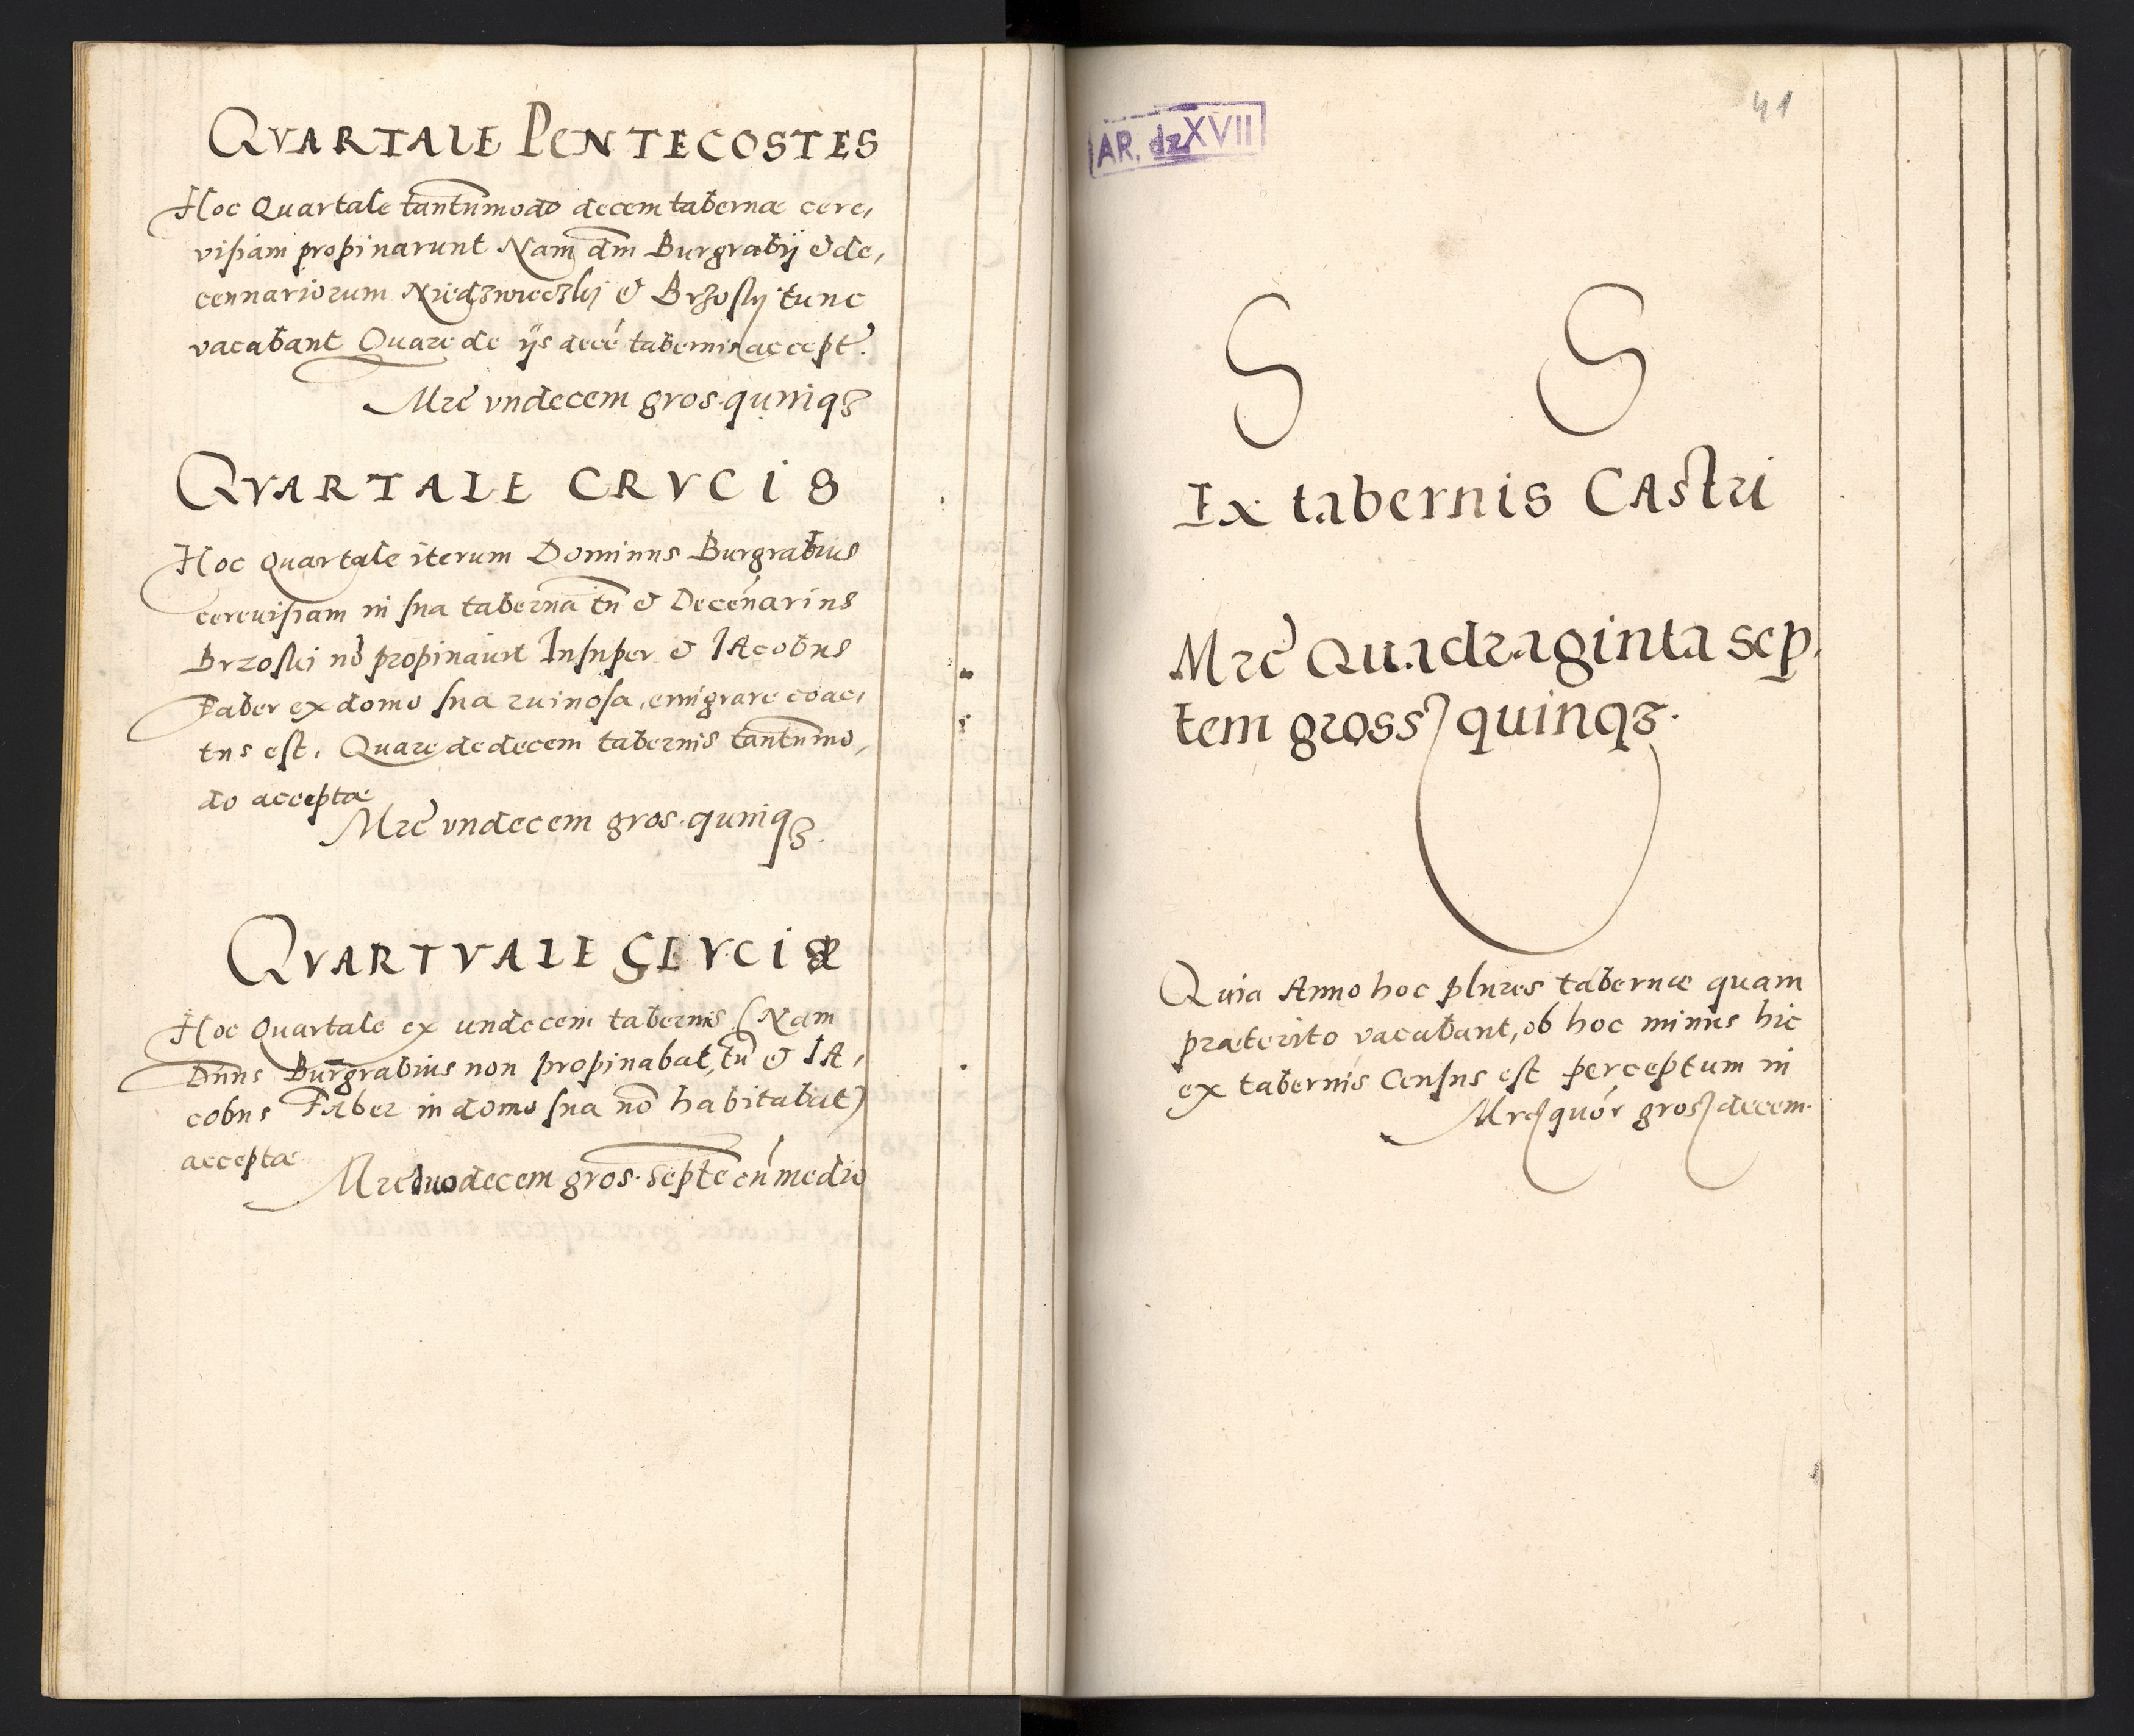 QVARTALE PENTECOSTES
Hoc Quartale tantummodo decem tabernæ cere,
visiam propinarunt Nam dm̄ Burgrabij & de,
cennariorum Niedzwieczkij & Brzoskij tunc
vacabant Quare de ijs decē tabernis accept.
Mrc̄ vndecem gros. quinqȝ
QVARTALE CRVCIS
Hoc Quartale iterum Dominus Burgrabius
cereuisiam in sua taberna tn̄ & Decēnarius
Brzoski nō propinaūt Insuper & IAcobus
Faber ex domo sua ruinosa, emigrare coac,
tus est. Quare de decem tabernis tantummo,
do acceptæ
Mrc̄ vndecem gros. quinqȝ.
QVARTVALE LVCIÆ
Hoc Quartale ex undecem tabernis (Nam
Dn̄ns Burgrabius non propinabat, tū & IA,
cobus Faber in domo sua nō habitabat)
acceptæ
Mrc̄ duodecem gros. septē cū medio
AR. dz XVII
41
S S
Ex tabernis CAstri
Mrc̄ Quadraginta sep,
tem gross quinqȝ.
Quia Anno hoc plures tabernæ quam
præterito vacabant, ob hoc minus hic
ex tabernis Census est perceptum in
Mrc quór gros decem.